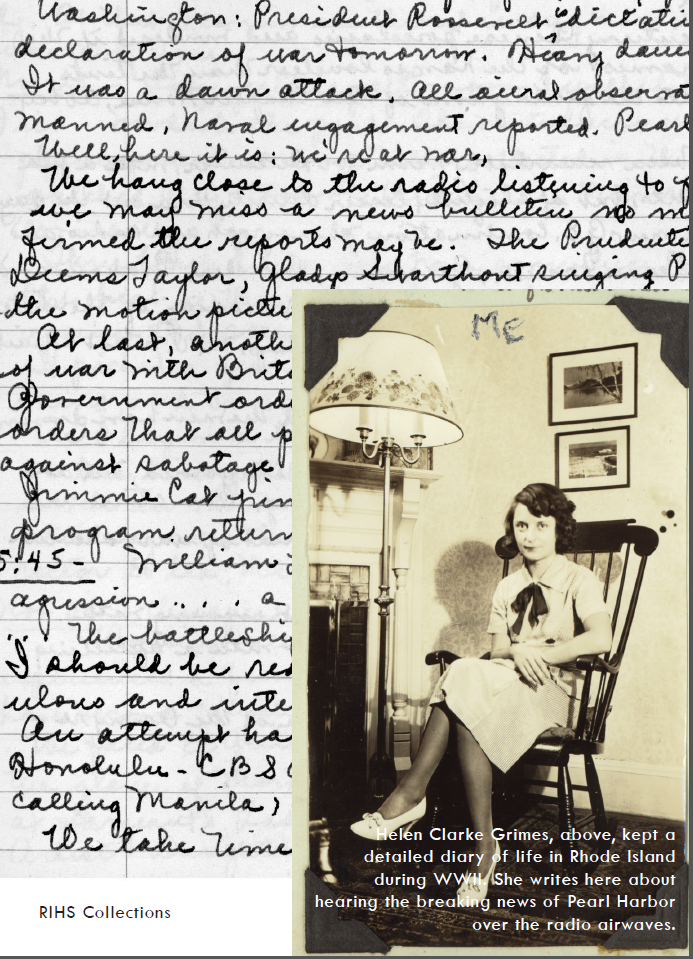 Washington: President Roosevelt "dictati
declaration of war tomorrow. Heavy
It was a dawn attack. All aerial observa
manned, Naval engagement reported. Pearl
Well, here it is: we're at war,
We hang close to the radio listening to
we may miss a news bulletin no m
firmed the reports may be. The Prudentia
Deems Taylor, Gladys Swarthout singing P
the motion pictu
At last, anoth
of war with Brita
Government ord
orders that all p
against sabotage
Jimmie
program. return
5:45- William
agression . . . . a
. . . The battleshi
I should be rea
ulous and inte
An attempt ha
Honolulu - CBS
calling Manila,
We take Time
ME
Helen Clarke Grimes, above, kept a
detailed diary of life in Rhode Island
during WWII. She writes here about
hearing the breaking news of Pearl Harbor
over the radio airwaves.
RIHS Collections